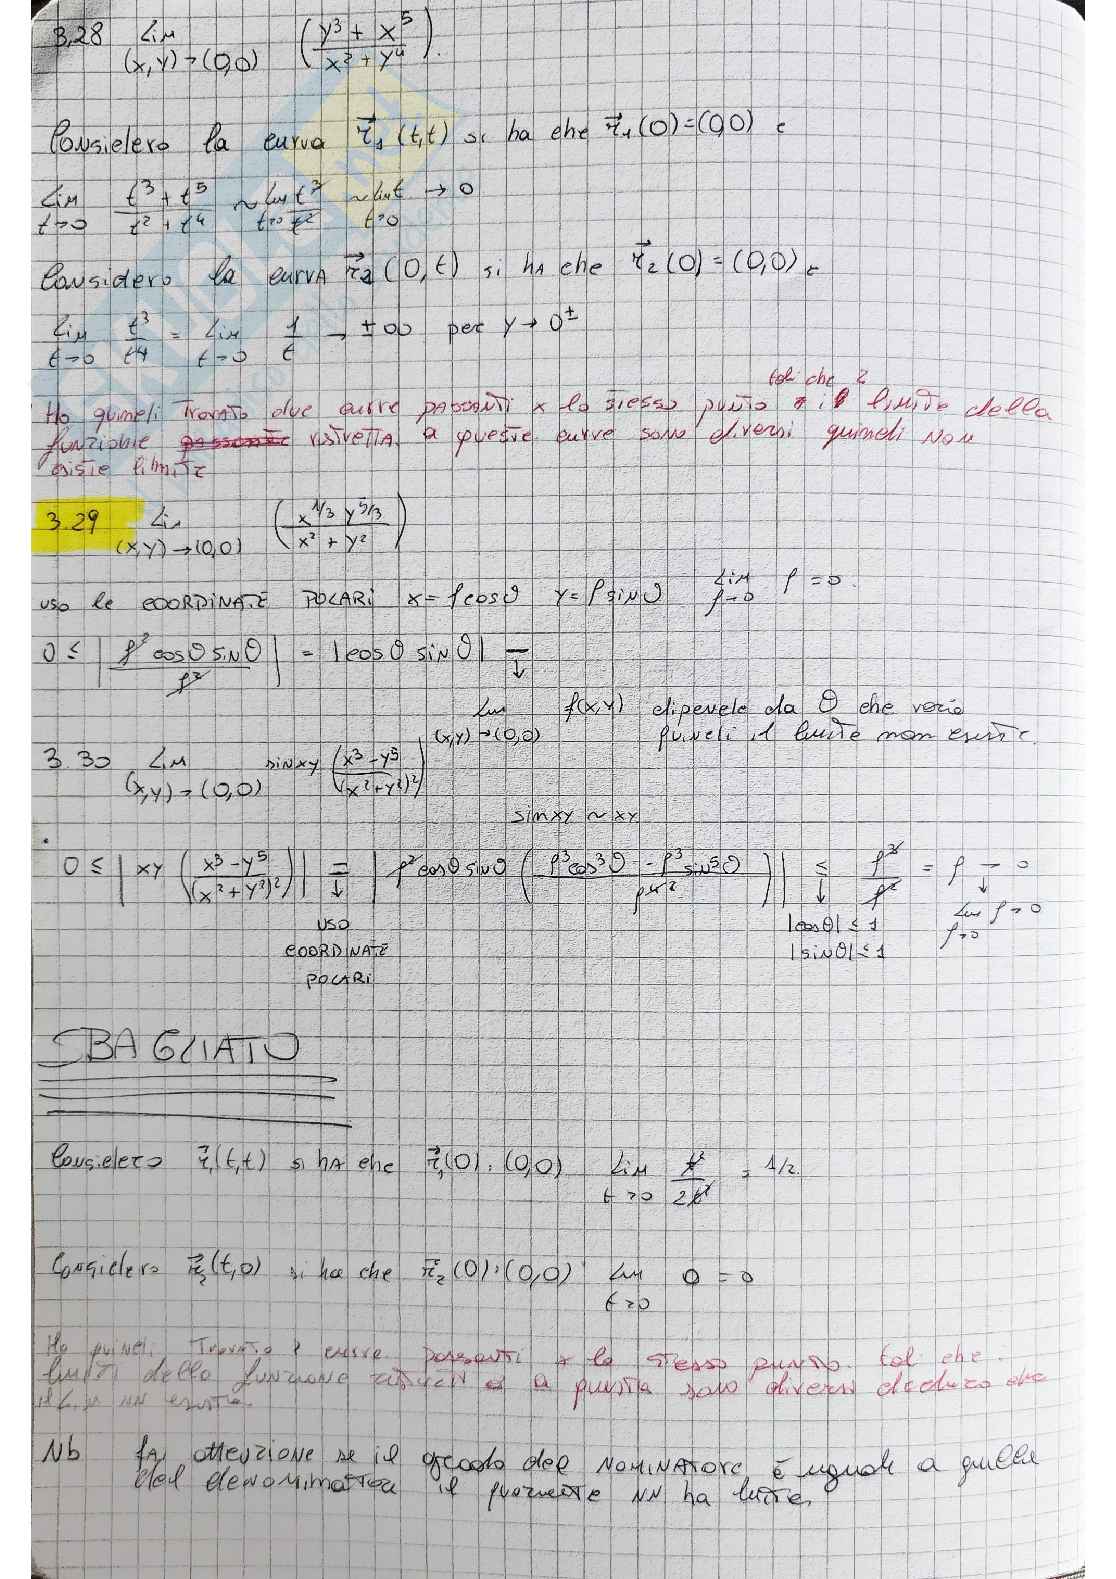 3.28 Lim (x,y)→(0,0) ( (y³ + x⁵) / (x² + y⁴) ).
Considero la curva r⃗₁(t,t) si ha che r⃗₁(0)=(0,0) e
Lim t→0 (t³ + t⁵) / (t² + t⁴) ~ Lim t→0 t³/t² ~ Lim t→0 t → 0
Considero la curva r⃗₂(0,t) si ha che r⃗₂(0)=(0,0) e
Lim t→0 t³/t⁴ = Lim t→0 1/t → ±∞ per y→0±
tali che i
Ho quindi trovato due curve passanti x lo stesso punto il limite della
funzione ristretta a queste curve sono diversi quindi non
esiste limite
3.29 Lim (x,y)→(0,0) ( x^1/3 y^5/3 / (x² + y²) )
uso le COORDINATE POLARI x=ρcosθ y=ρsinθ Lim ρ→0 ρ=0.
0 ≤ | ρ² cosθ sinθ / ρ² | = |cosθ sinθ| —
↓
Lim (x,y)→(0,0) f(x,y) dipende da θ che varia
quindi il limite non esiste.
3.30 Lim (x,y)→(0,0) sinxy ( (x³-y⁵) / (x²+y²)² )
sinxy ~ xy
0 ≤ | xy ( (x³-y⁵) / (x²+y²)² ) | = | ρ²cosθsinθ ( (ρ³cos³θ - ρ³sin⁵θ) / ρ⁴ ² ) | ≤ ρ³/ρ² = ρ → 0
↓ ↓ ↓
USO |cosθ| ≤ 1 Lim ρ→0 ρ=0
COORDINATE |sinθ| ≤ 1
POLARI
SBAGLIATO
Considero r⃗₁(t,t) si ha che r⃗₁(0):(0,0) Lim t→0 t²/2t² = 1/2.
Considero r⃗₂(t,0) si ha che r⃗₂(0):(0,0) Lim t→0 0 = 0
Ho quindi trovato 2 curve passanti x lo stesso punto tal che
limiti della funzione a questa sono diversi deduco che
il Lim NN esiste.
Nb fai attenzione se il grado del NOMINATORE è uguale a quello
del denominatore il NN ha limite.